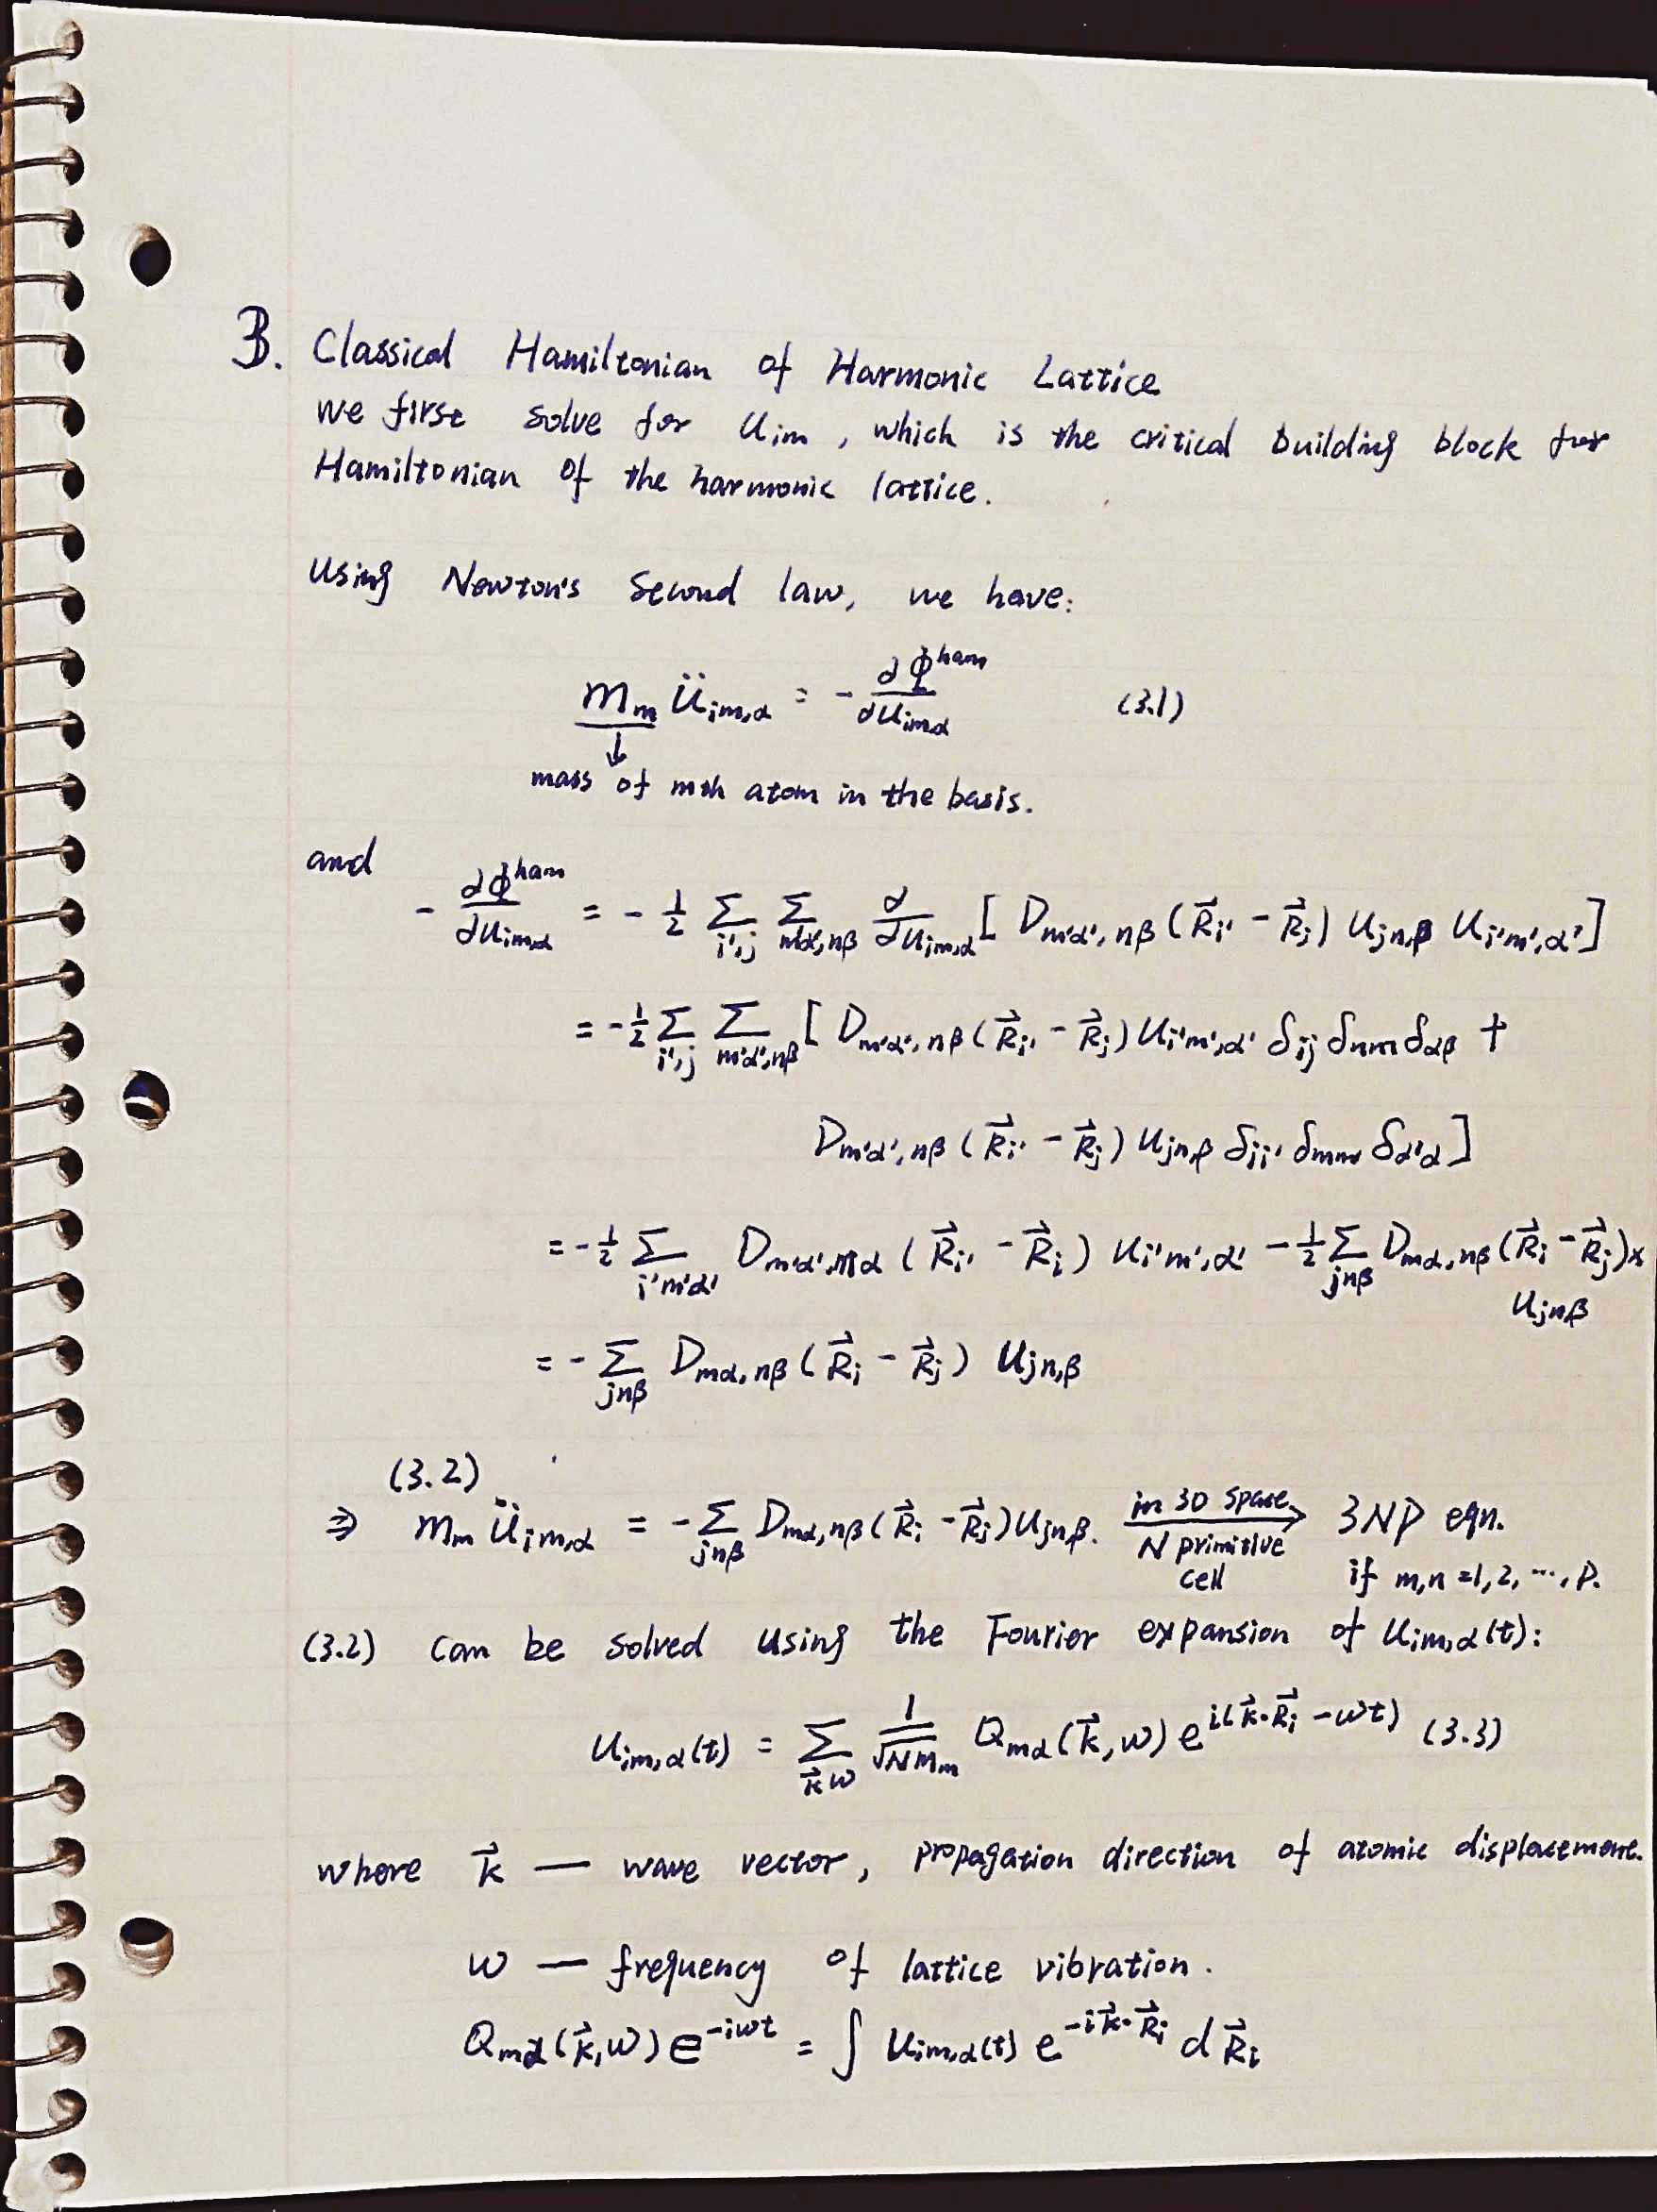 3. Classical Hamiltonian of Harmonic Lattice
We first solve for u_{im}, which is the critical building block for
Hamiltonian of the harmonic lattice.
Using Newton's second law, we have:
m_m ü_{im,α} = - ∂Φ^{ham}/∂u_{imα} (3.1)
↓
mass of mth atom in the basis.
and
- ∂Φ^{ham}/∂u_{im,α} = - 1/2 Σ_{i',j} Σ_{m'α',nβ} ∂/∂u_{im,α} [ D_{m'α',nβ} (R⃗_{i'} - R⃗_j) u_{jn,β} u_{i'm',α'} ]
= - 1/2 Σ_{i',j} Σ_{m'α',nβ} [ D_{m'α',nβ} (R⃗_{i'} - R⃗_j) u_{i'm',α'} δ_{ij} δ_{nm} δ_{αβ} +
D_{m'α',nβ} (R⃗_{i'} - R⃗_j) u_{jn,β} δ_{ii'} δ_{mm'} δ_{α'α} ]
= - 1/2 Σ_{i'm'α'} D_{m'α',mα} (R⃗_{i'} - R⃗_i) u_{i'm',α'} - 1/2 Σ_{jnβ} D_{mα,nβ} (R⃗_i - R⃗_j) ×
u_{jnβ}
= - Σ_{jnβ} D_{mα,nβ} (R⃗_i - R⃗_j) u_{jn,β}
(3.2)
⇒ m_m ü_{im,α} = - Σ_{jnβ} D_{mα,nβ} (R⃗_i - R⃗_j) u_{jn,β}. in 3D space, N primitive cell → 3NP eqn.
if m,n = 1, 2, ..., P.
(3.2) can be solved using the Fourier expansion of u_{im,α}(t):
u_{im,α}(t) = Σ_{k⃗ω} 1/√(N m_m) Q_{mα}(k⃗,ω) e^{i(k⃗·R⃗_i - ωt)} (3.3)
where k⃗ — wave vector, propagation direction of atomic displacement.
ω — frequency of lattice vibration.
Q_{mα}(k⃗,ω) e^{-iωt} = ∫ u_{im,α}(t) e^{-ik⃗·R⃗_i} dR⃗_i